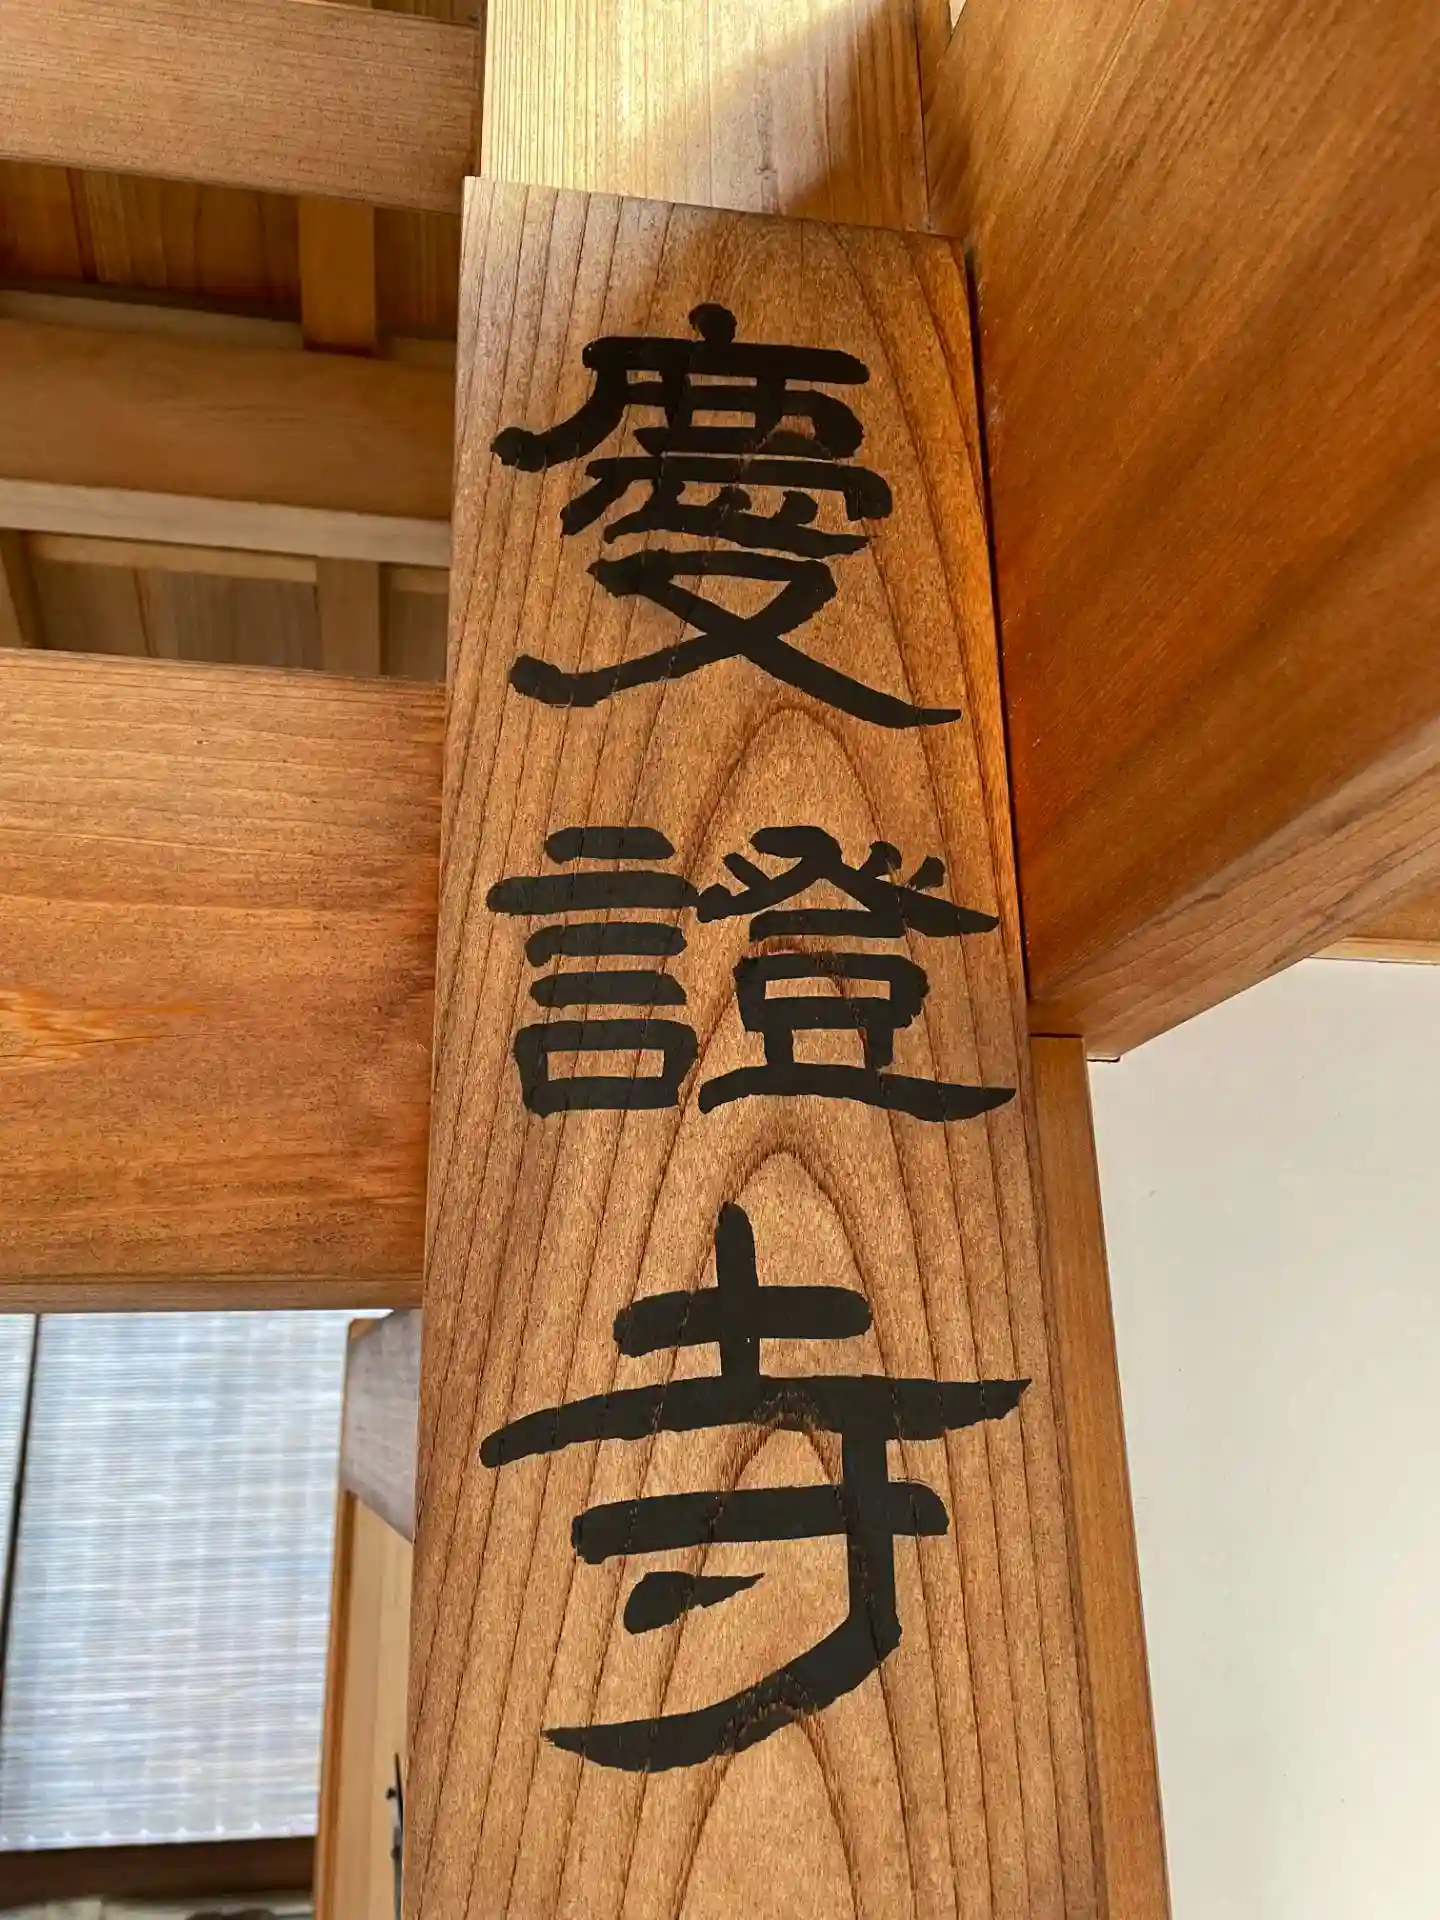 慶證寺